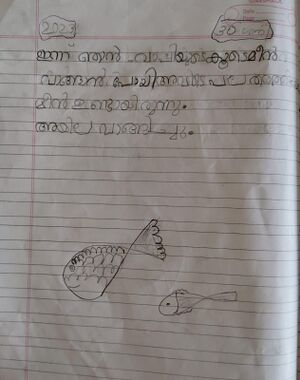 2023
30
ഇന്ന് ഞാൻ വാപ്പിയുടെകൂടെമീൻ
വാങ്ങാൻ പോയി അവിടെ പല തരത്ത
മീൻ ഉണ്ടായിരുന്നു.
അയില വാങ്ങിച്ചു.